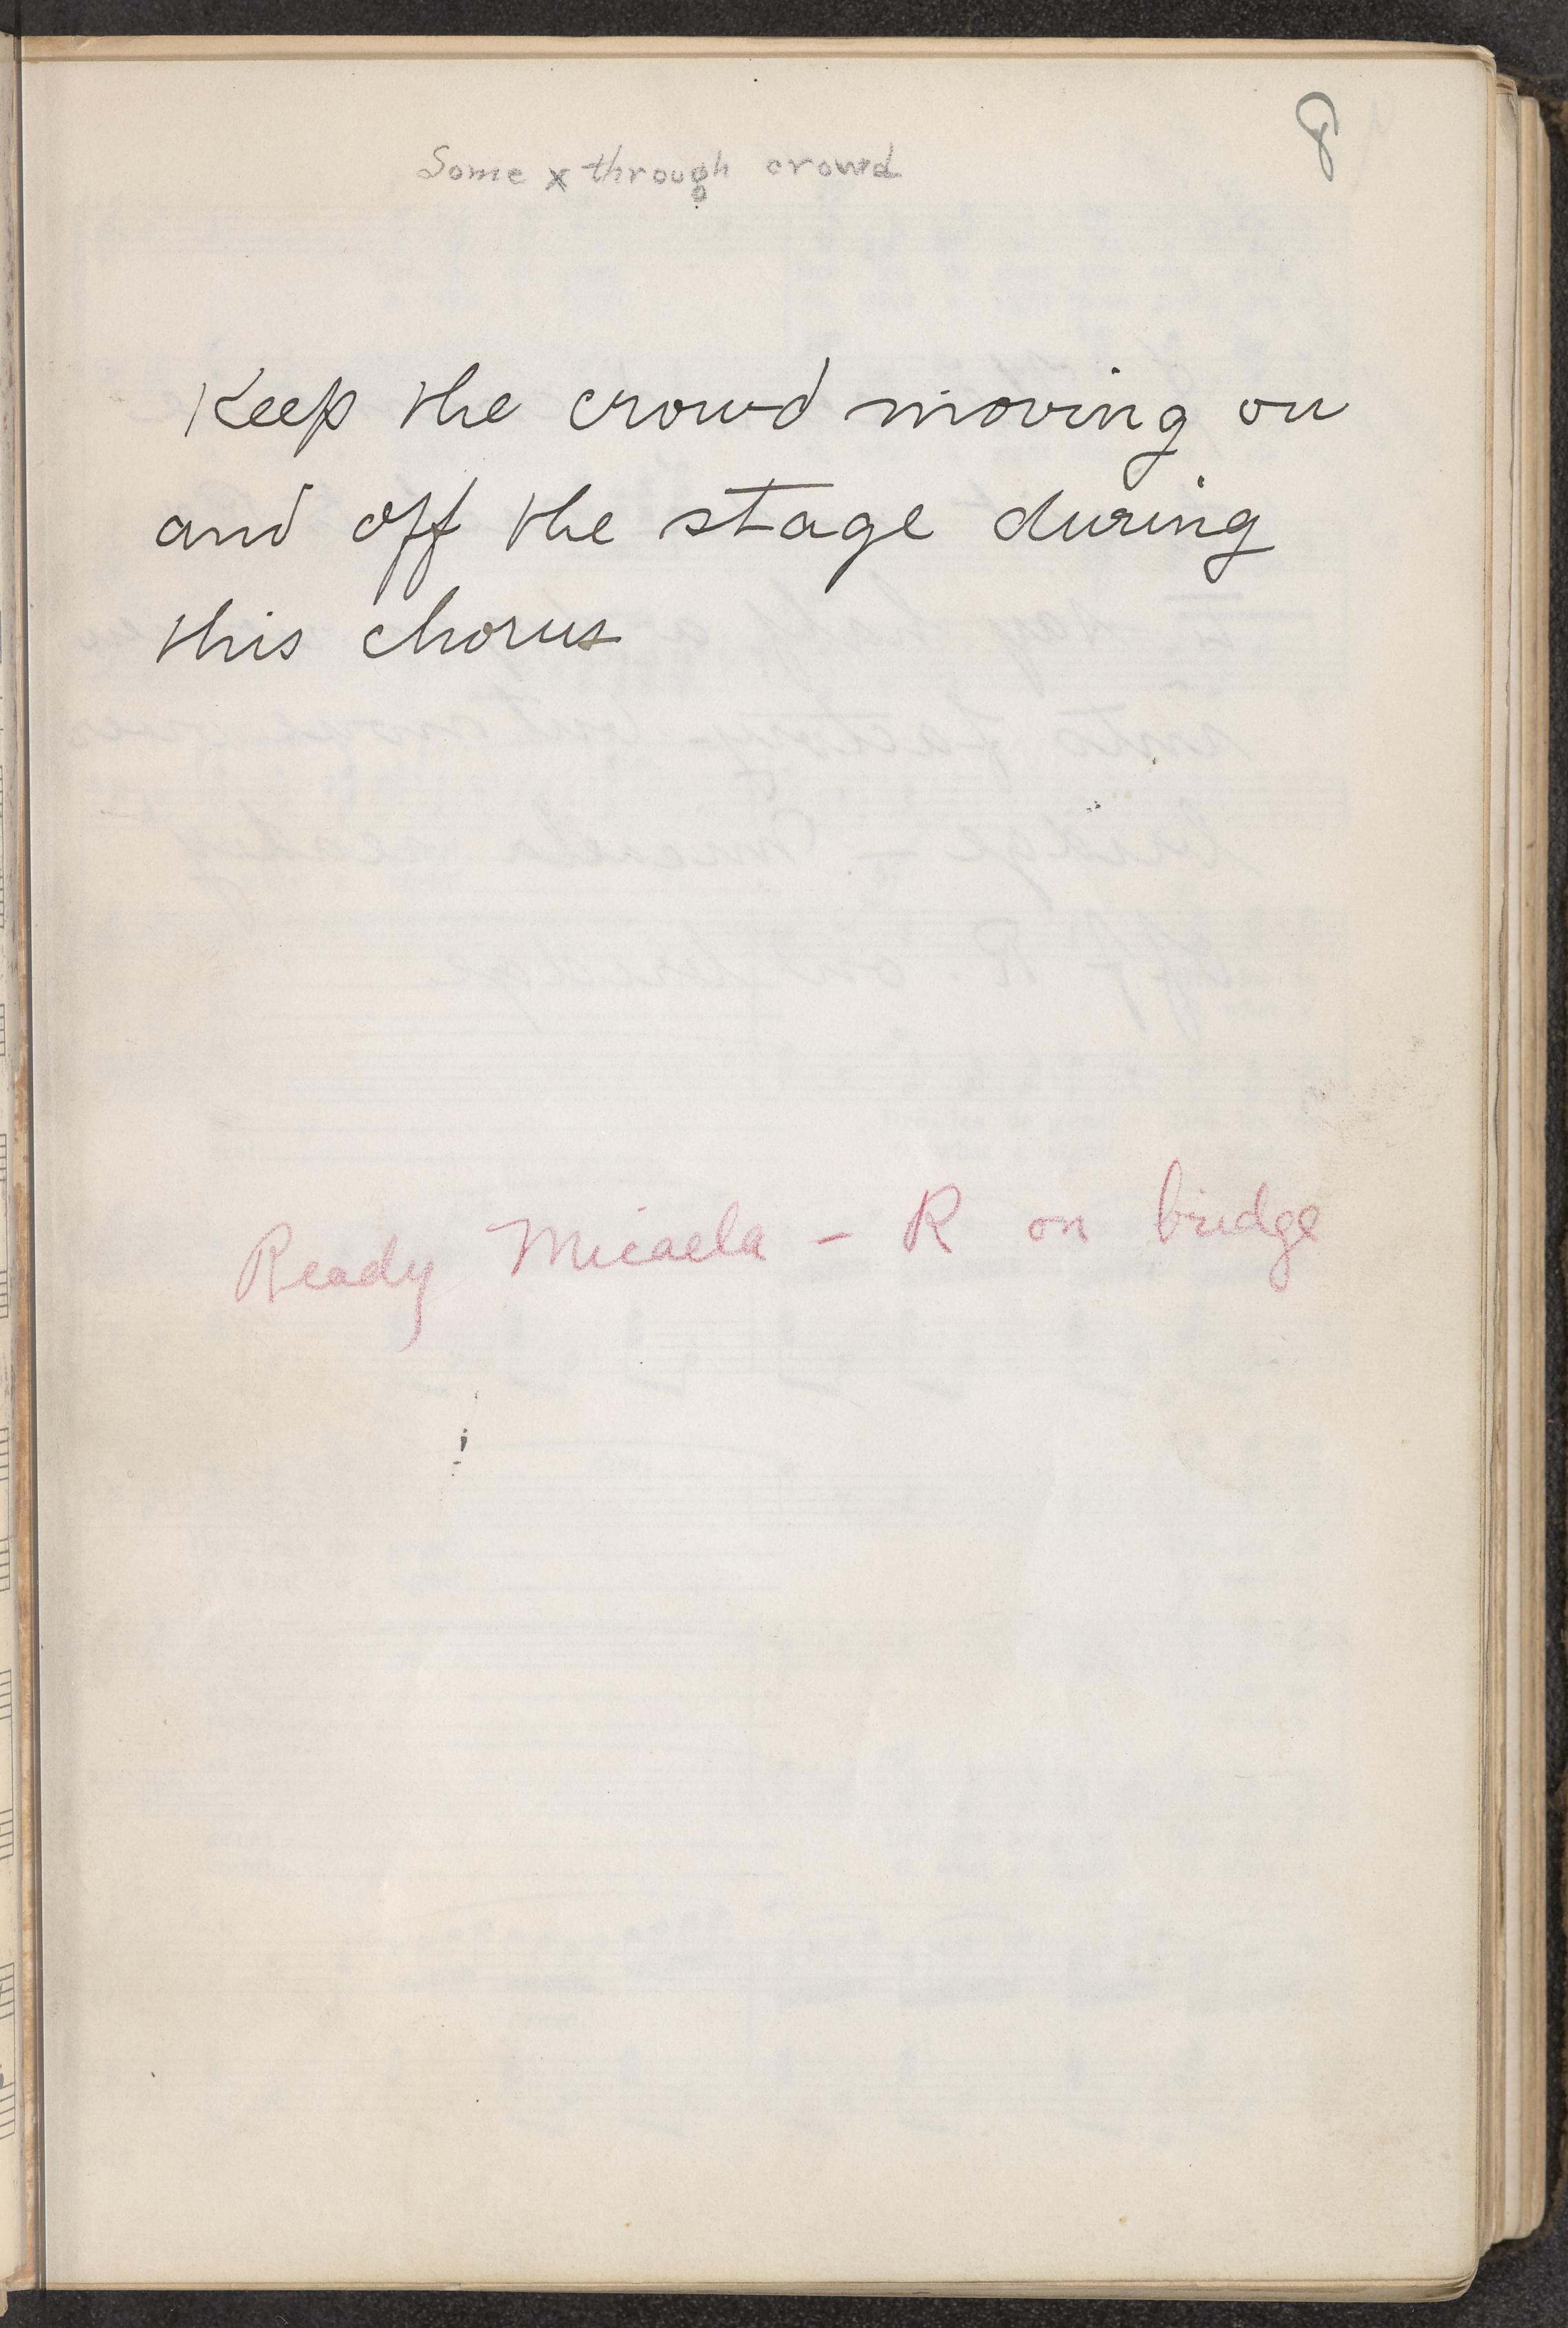 8
Some x through crowd
Keep the crowd moving on
and off the stage during
this chorus
Ready Micaela - R on bridge